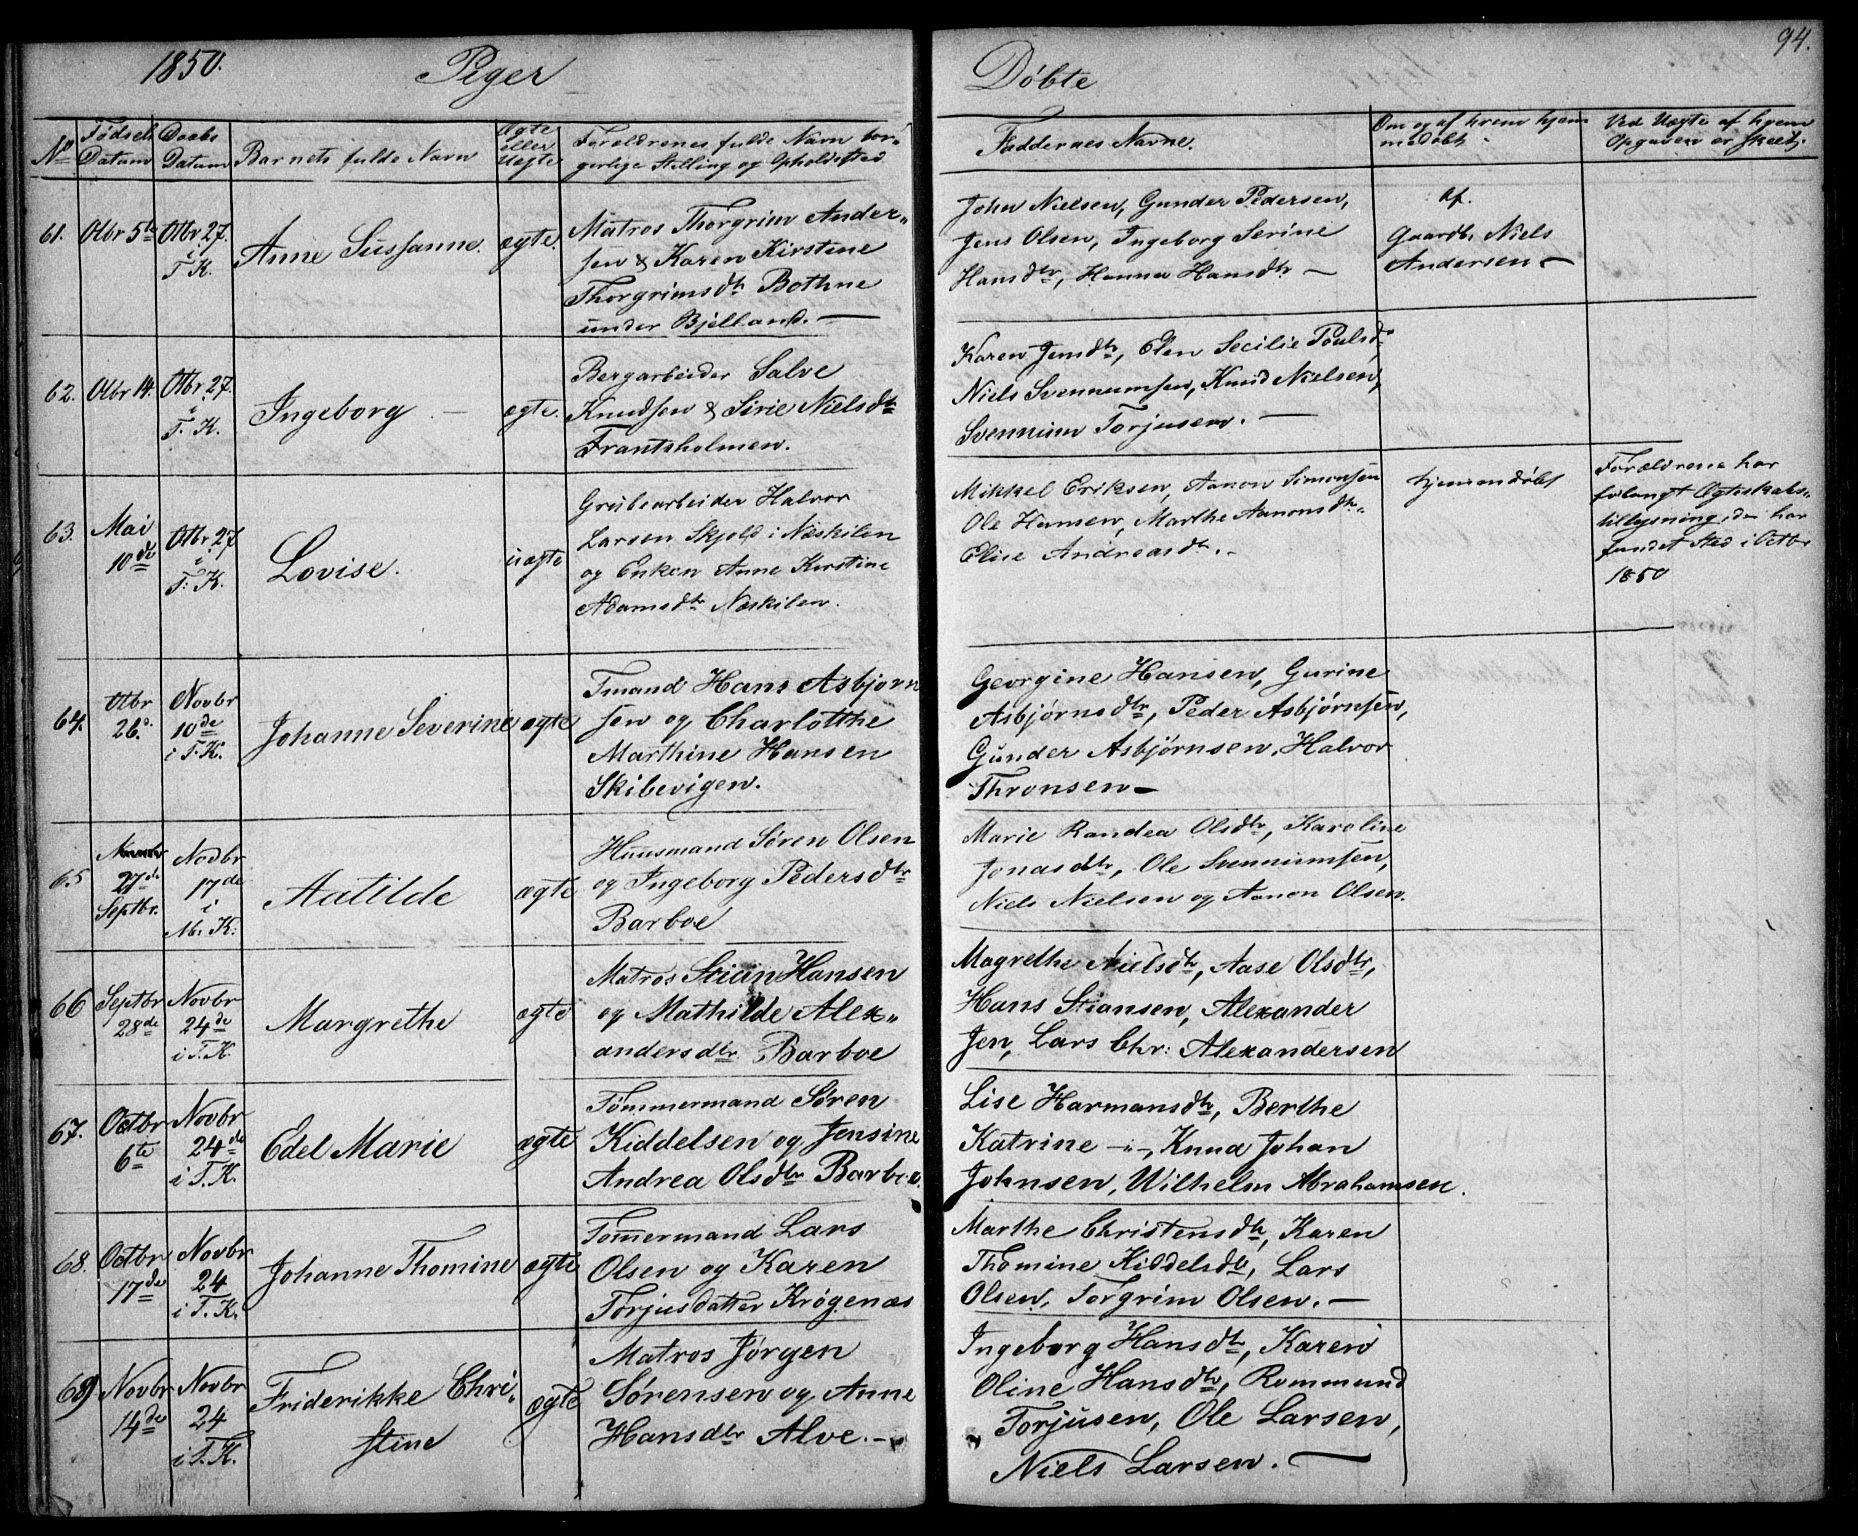 1850.
Piger
Døbte
94.
No
Fødsels Datum
Daabs Datum
Barnets fulde Navn
Ægte eller Uægte
Forældrenes fulde Navn bor-
gerlige Stilling og Opholdssted
Faddernes Navne.
Om og af hvem hjem
medøbt
Ved Uægte af hvem
Opgaven er skeet.
61. Otbr 5te Otbr 27. i T. K. Anne Sussanne. ægte.
Matros Thorgrim Ander„
sen & Karen Kirstine
Thorgrimsdtr Bothne
under Bjelland. —
John Nielsen, Gunder Pedersen,
Jens Olsen, Ingeborg Serine
Hansdtr, Hanna Hansdtr —
af.
Gaardbr Niels
Andersen —
62. Otbr 14. Otbr 27. i T. K. Ingeborg — ægte.
Bergarbeider Salve
Knudsen & Sirie Nielsdtr
Frantsholmen.
Karen Jensdtr, Elen Secilie Poulsdr
Niels Svennumsen, Knud Nielsen,
Svennum Torjusen. —
63. Mai 10de Otbr 27 i T. K. Lovise. uægte
Grubearbeider Halvor
Larsen Skjold i Næskilen
og Enken Anne Kirstine
Adamsdtr Næskilen.
Mikkel Eriksen, Aanon Simonsen
Ole Hansen, Marthe Aanonsdtr.
Elise Andreasdtr. -
hjemmedøbt
Forældrene har
forlangt Ægteskabs-
tillysning, der har
fundet Sted i Octbr
1850
64. Otbr 26. Novbr 10de i T. K. Johanne Severine ægte
Tmand Hans Asbjørn
sen og Charlotthe
Marthine Hansen
Skibevigen.
Georgine Hansen, Gurine
Asbjørnsdtr, Peder Asbjørnsen,
Gunder Asbjørnsen, Halvor
Thronsen —
65 27de Septbr. Novbr 17de i M. K. Aatilde ægte
Huusmand Søren Olsen
og Ingeborg Pedersdtr
Barboe
Marie Randea Olsdtr, Karoline
Jonasdtr, Ole Svennumsen,
Niels Nielsen og Aanon Olsen.
66 Septbr 28de Novbr 24de i T. K. Margrethe ægte
Matros Stian Hansen
og Mathilde Alex„
andersdtr Barboe
Magrethe Nielsdtr, Aase Olsdtr,
Hans Stiansen, Alexander
Jen, Lars Chr: Alexandersen
67. Octbr 6te Novbr 24de i T. K. Edel Marie ægte
Tømmermand Søren
Kiddelsen og Jensine
Andrea Olsdtr Barboe.
Lise Harmansdtr, Berthe
Katrine -"-, Knud Johan
Johnsen, Wilhelm Abrahamsen.
68. Octbr 17de Novbr 24 i T. K. Johanne Thomine ægte
Tømermand Lars
Olsen og Karen
Torjusdatter Krøgenæs
Marthe Christensdtr, Karen
Thomine Kiddelsdtr, Lars
Olsen, Torgrim Olsen. —
69 Novbr 14de Novbr 24 i T. K. Friderikke Chri„ stine ægte
Matros Jørgen
Sørensen og Anne
Hansdtr Alve. —
Ingeborg Hansdtr, Karen
Oline Hansdtr, Rommund
Torjusen, Ole Larsen,
Niels Larsen. —